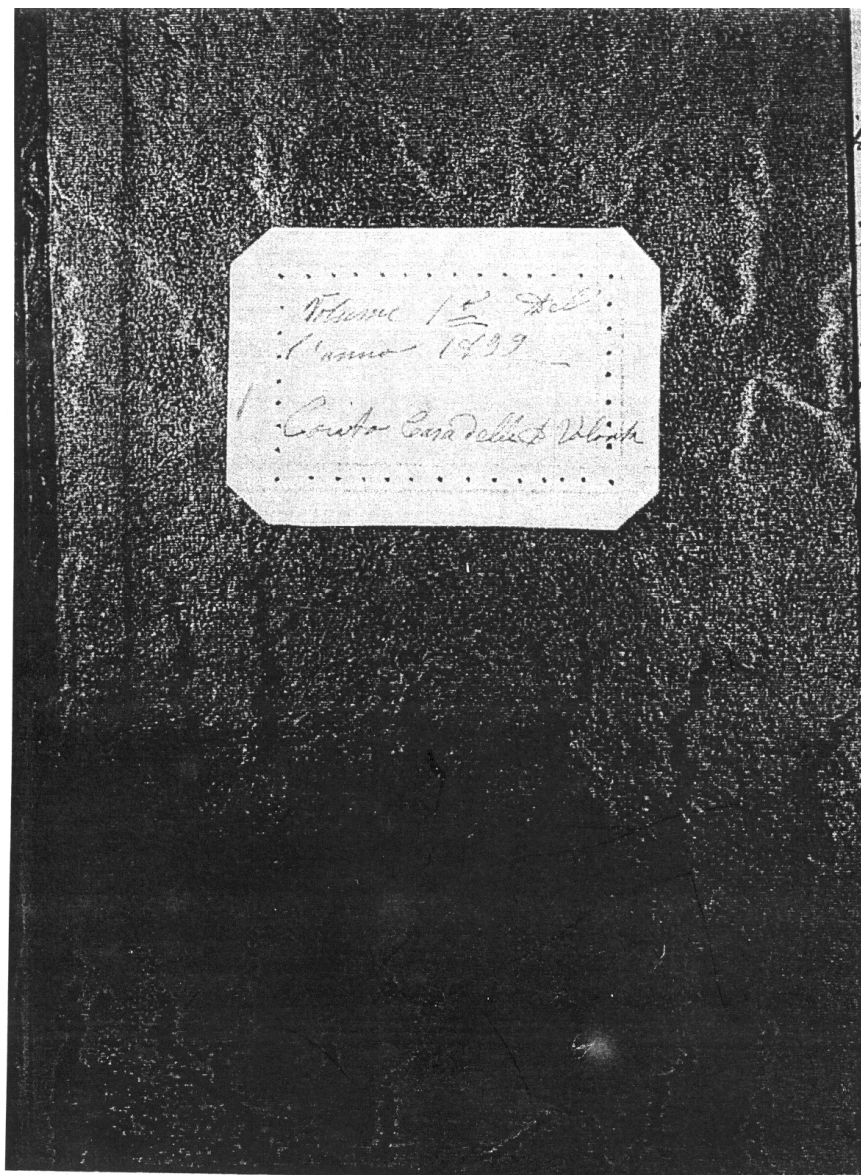 Volume 1º Del
l'anno 1899
Conto Casa della D Volontà